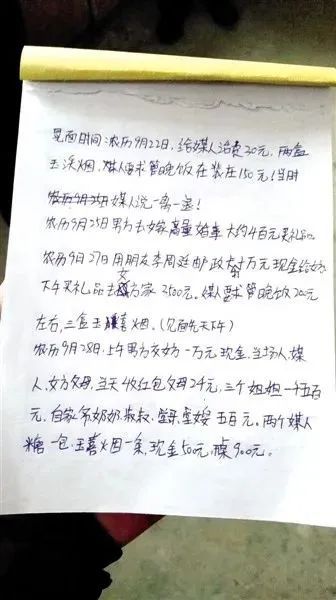 见面时间:农历9月22日,给媒人治费20元,两盒
玉溪烟,媒人要求管晚饭在装在150元!当时
农历9月25日媒人说一离一退!
农历9月25日男方去嫁商量婚事大约4百元买礼品。
农历9月27日用朋友李周廷邮政存折万元现金给好
下午买礼品去女方家3500元,媒人要求管晚饭20元
左右,三盒玉喜烟。(见面先天下午)
农历9月28日:上午男方交女方一万元现金,当场人,媒
人,女方父母,当天4收红包父母24元,三个姐姐一千五百
元,自家爷奶奶,叔叔,堂哥,堂嫂五百元。两个媒人
糖一包,玉喜烟一条,现金50元,桌900元。